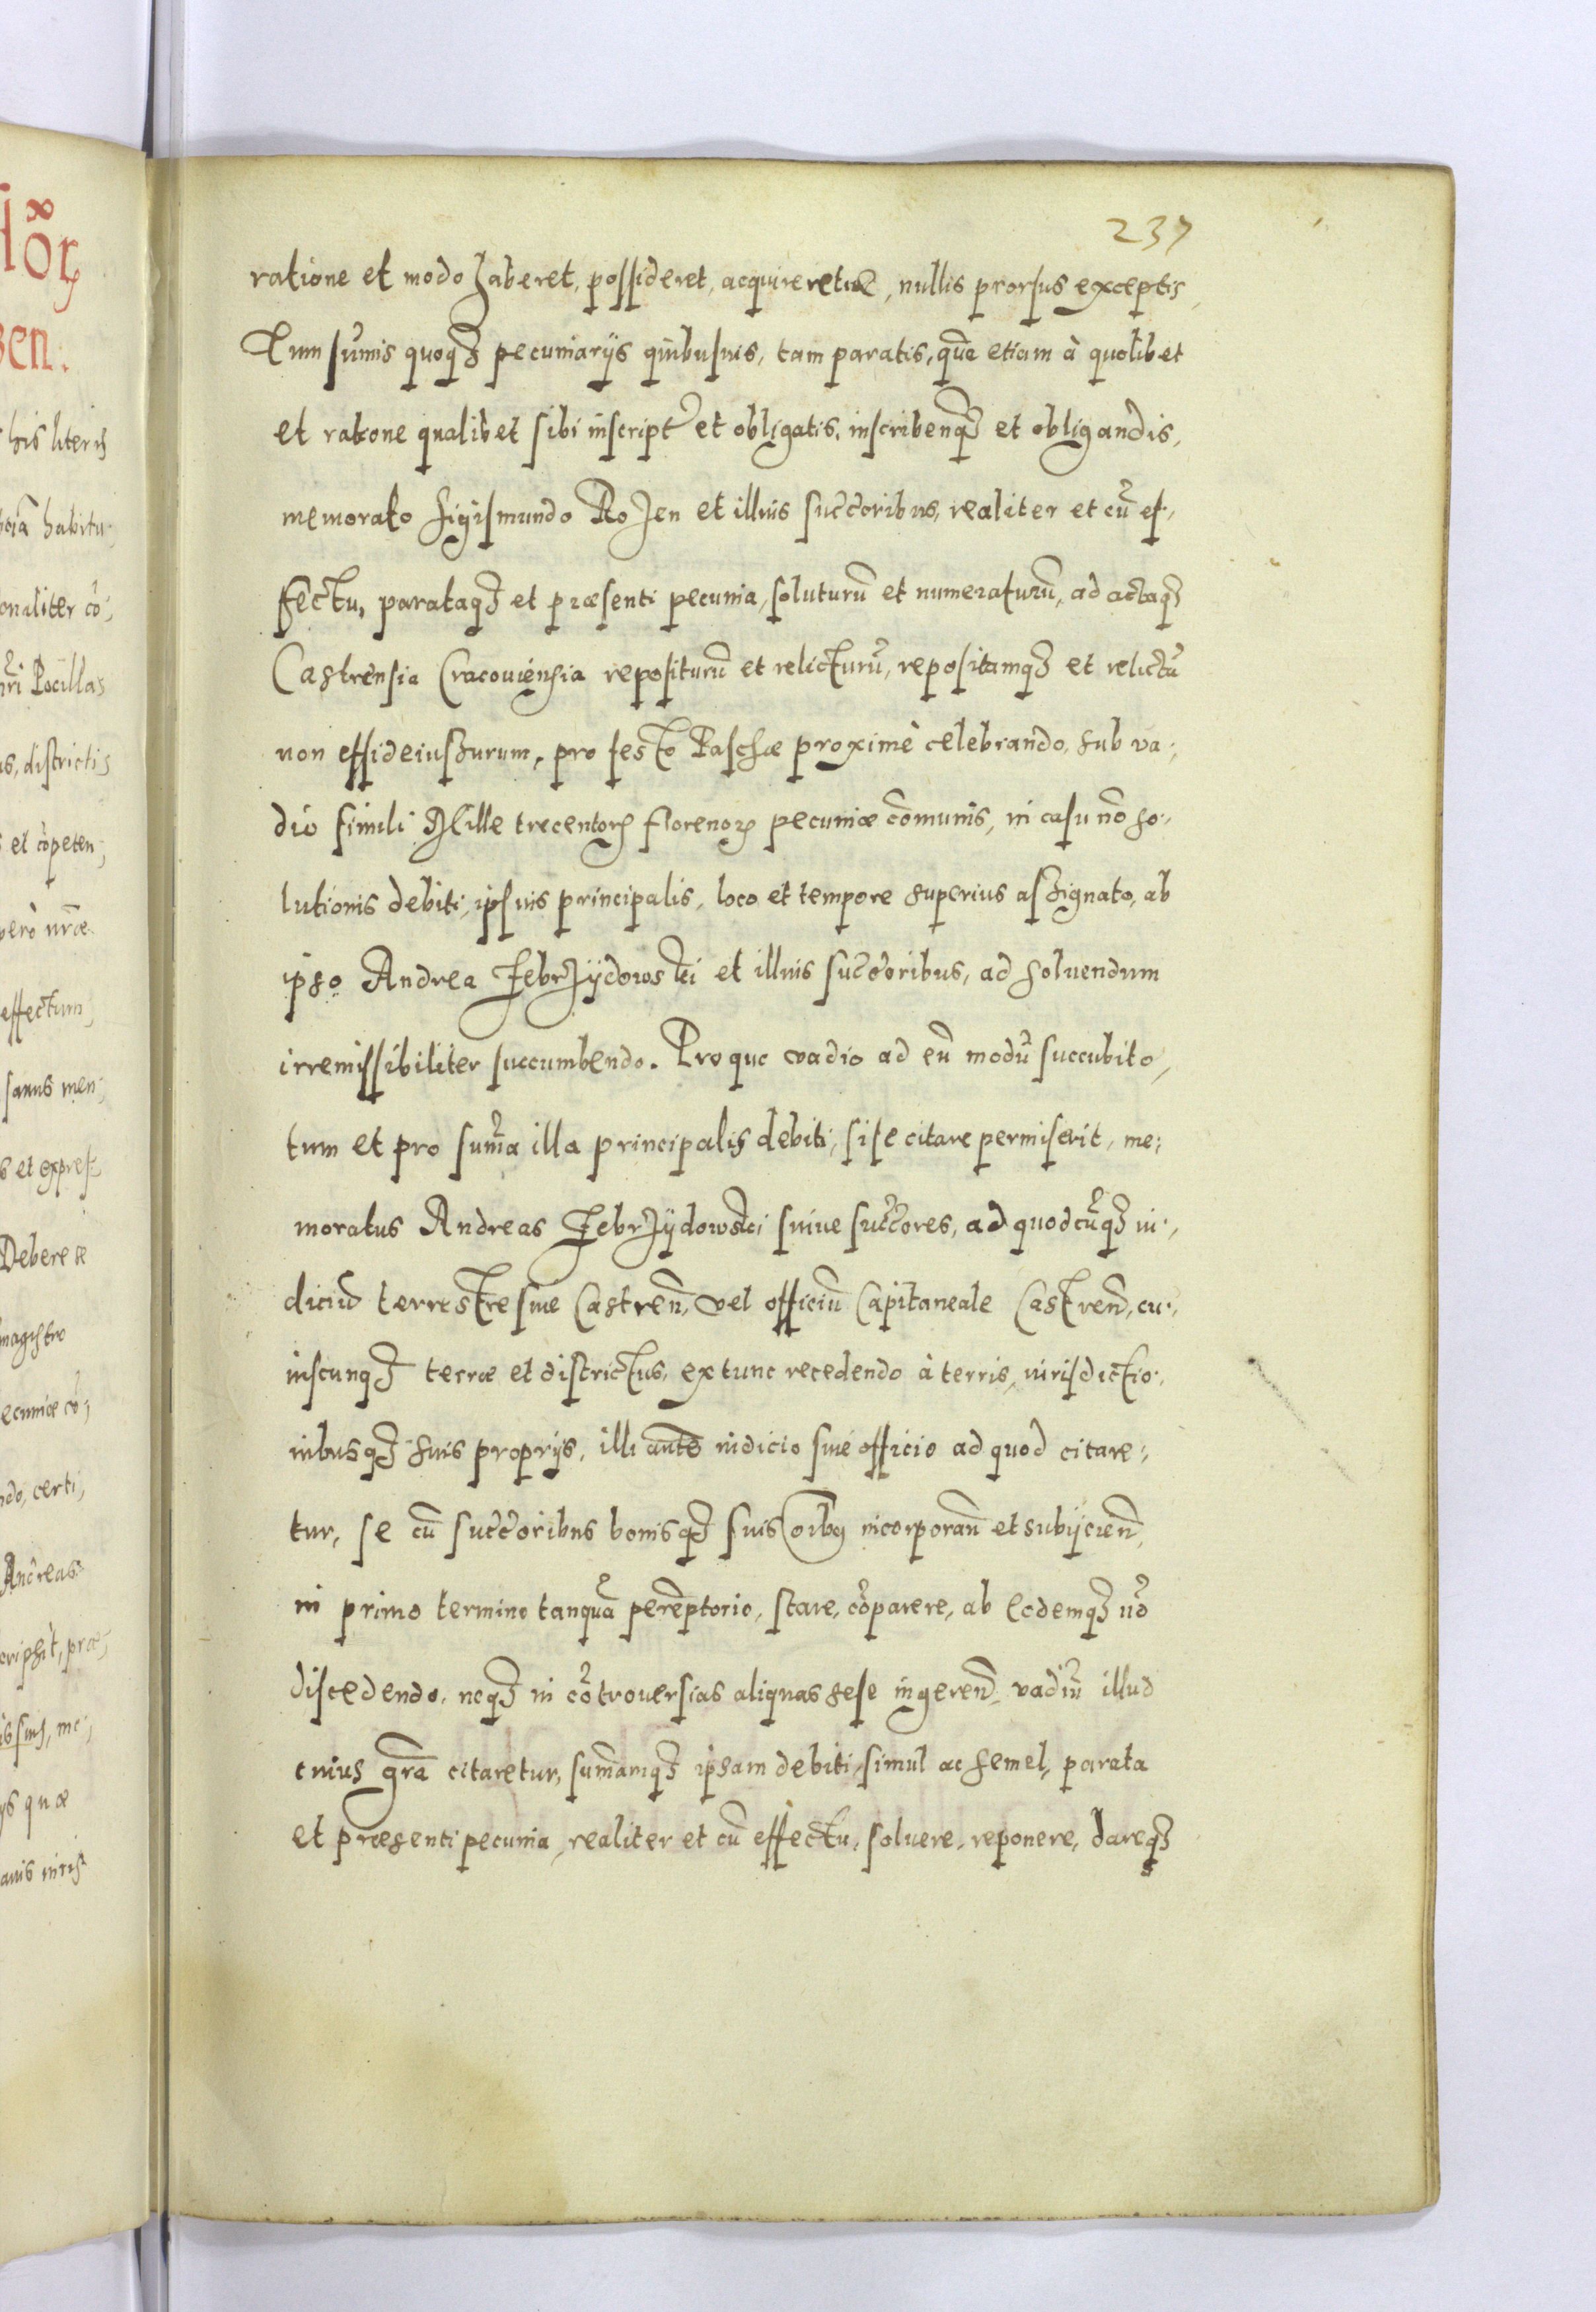 237
ratione et modo haberet, possideret, acquireretue, nullis prorsus exceptis,
Tum sum̃is quoq3 pecuniarijs quibusuis, tam paratis, quã etiam à quolibet
et ratione qualibet sibi inscript̃ et obligatis, inscribenq3 et obligandis,
memorato Sigismundo Rozen et illius succ̃oribus, realiter et cũ ef-
fectu, parataq3 et præsenti pecunia, soluturũ et numeraturũ, ad actaq3
Castrensia Cracouiensia repositurũ et relicturũ, repositamq3 et relictã
non effideiussurum, pro festo Paschæ proximè celebrando, sub va-
dio simili Mille trecentorũ florenorũ pecuniæ com̃unis, in casu nõ so-
lutionis debiti, ipsius principalis, loco et tempore superius assignato, ab
ipso Andrea Zebrzÿdowski et illius succ̃oribus, ad soluendum
irremissibiliter succumbendo. Pro quo vadio ad eũ modũ succubito,
tum et pro sum̃a illa principalis debiti, si se citare permiserit, me-
moratus Andreas Zebrzÿdowski suiue succ̃ores, ad quodcũq3 iu-
diciũ terrestre siue Castreñ, vel officiũ Capitaneale Castreñ, cu-
iuscunq3 terræ et districtus, ex tunc recedendo à terris, iurisdictio-
nibusq3 suis proprijs, illi autẽ iudicio siue officio ad quod citare-
tur, se cũ succ̃oribus bonisq3 suis oĩbus incorporañ et subijcieñ,
in primo termino tanquã perẽptorio, stare, cõparere, ab eodemq3 nõ
discedendo, neq3 in cõtrouersias aliquas sese ingereñ, vadiũ illud
cuius grã citaretur, sum̃amq3 ipsam debiti, simul ac semel, parata
et præsenti pecunia, realiter et cũ effectu, soluere, reponere, dareq3